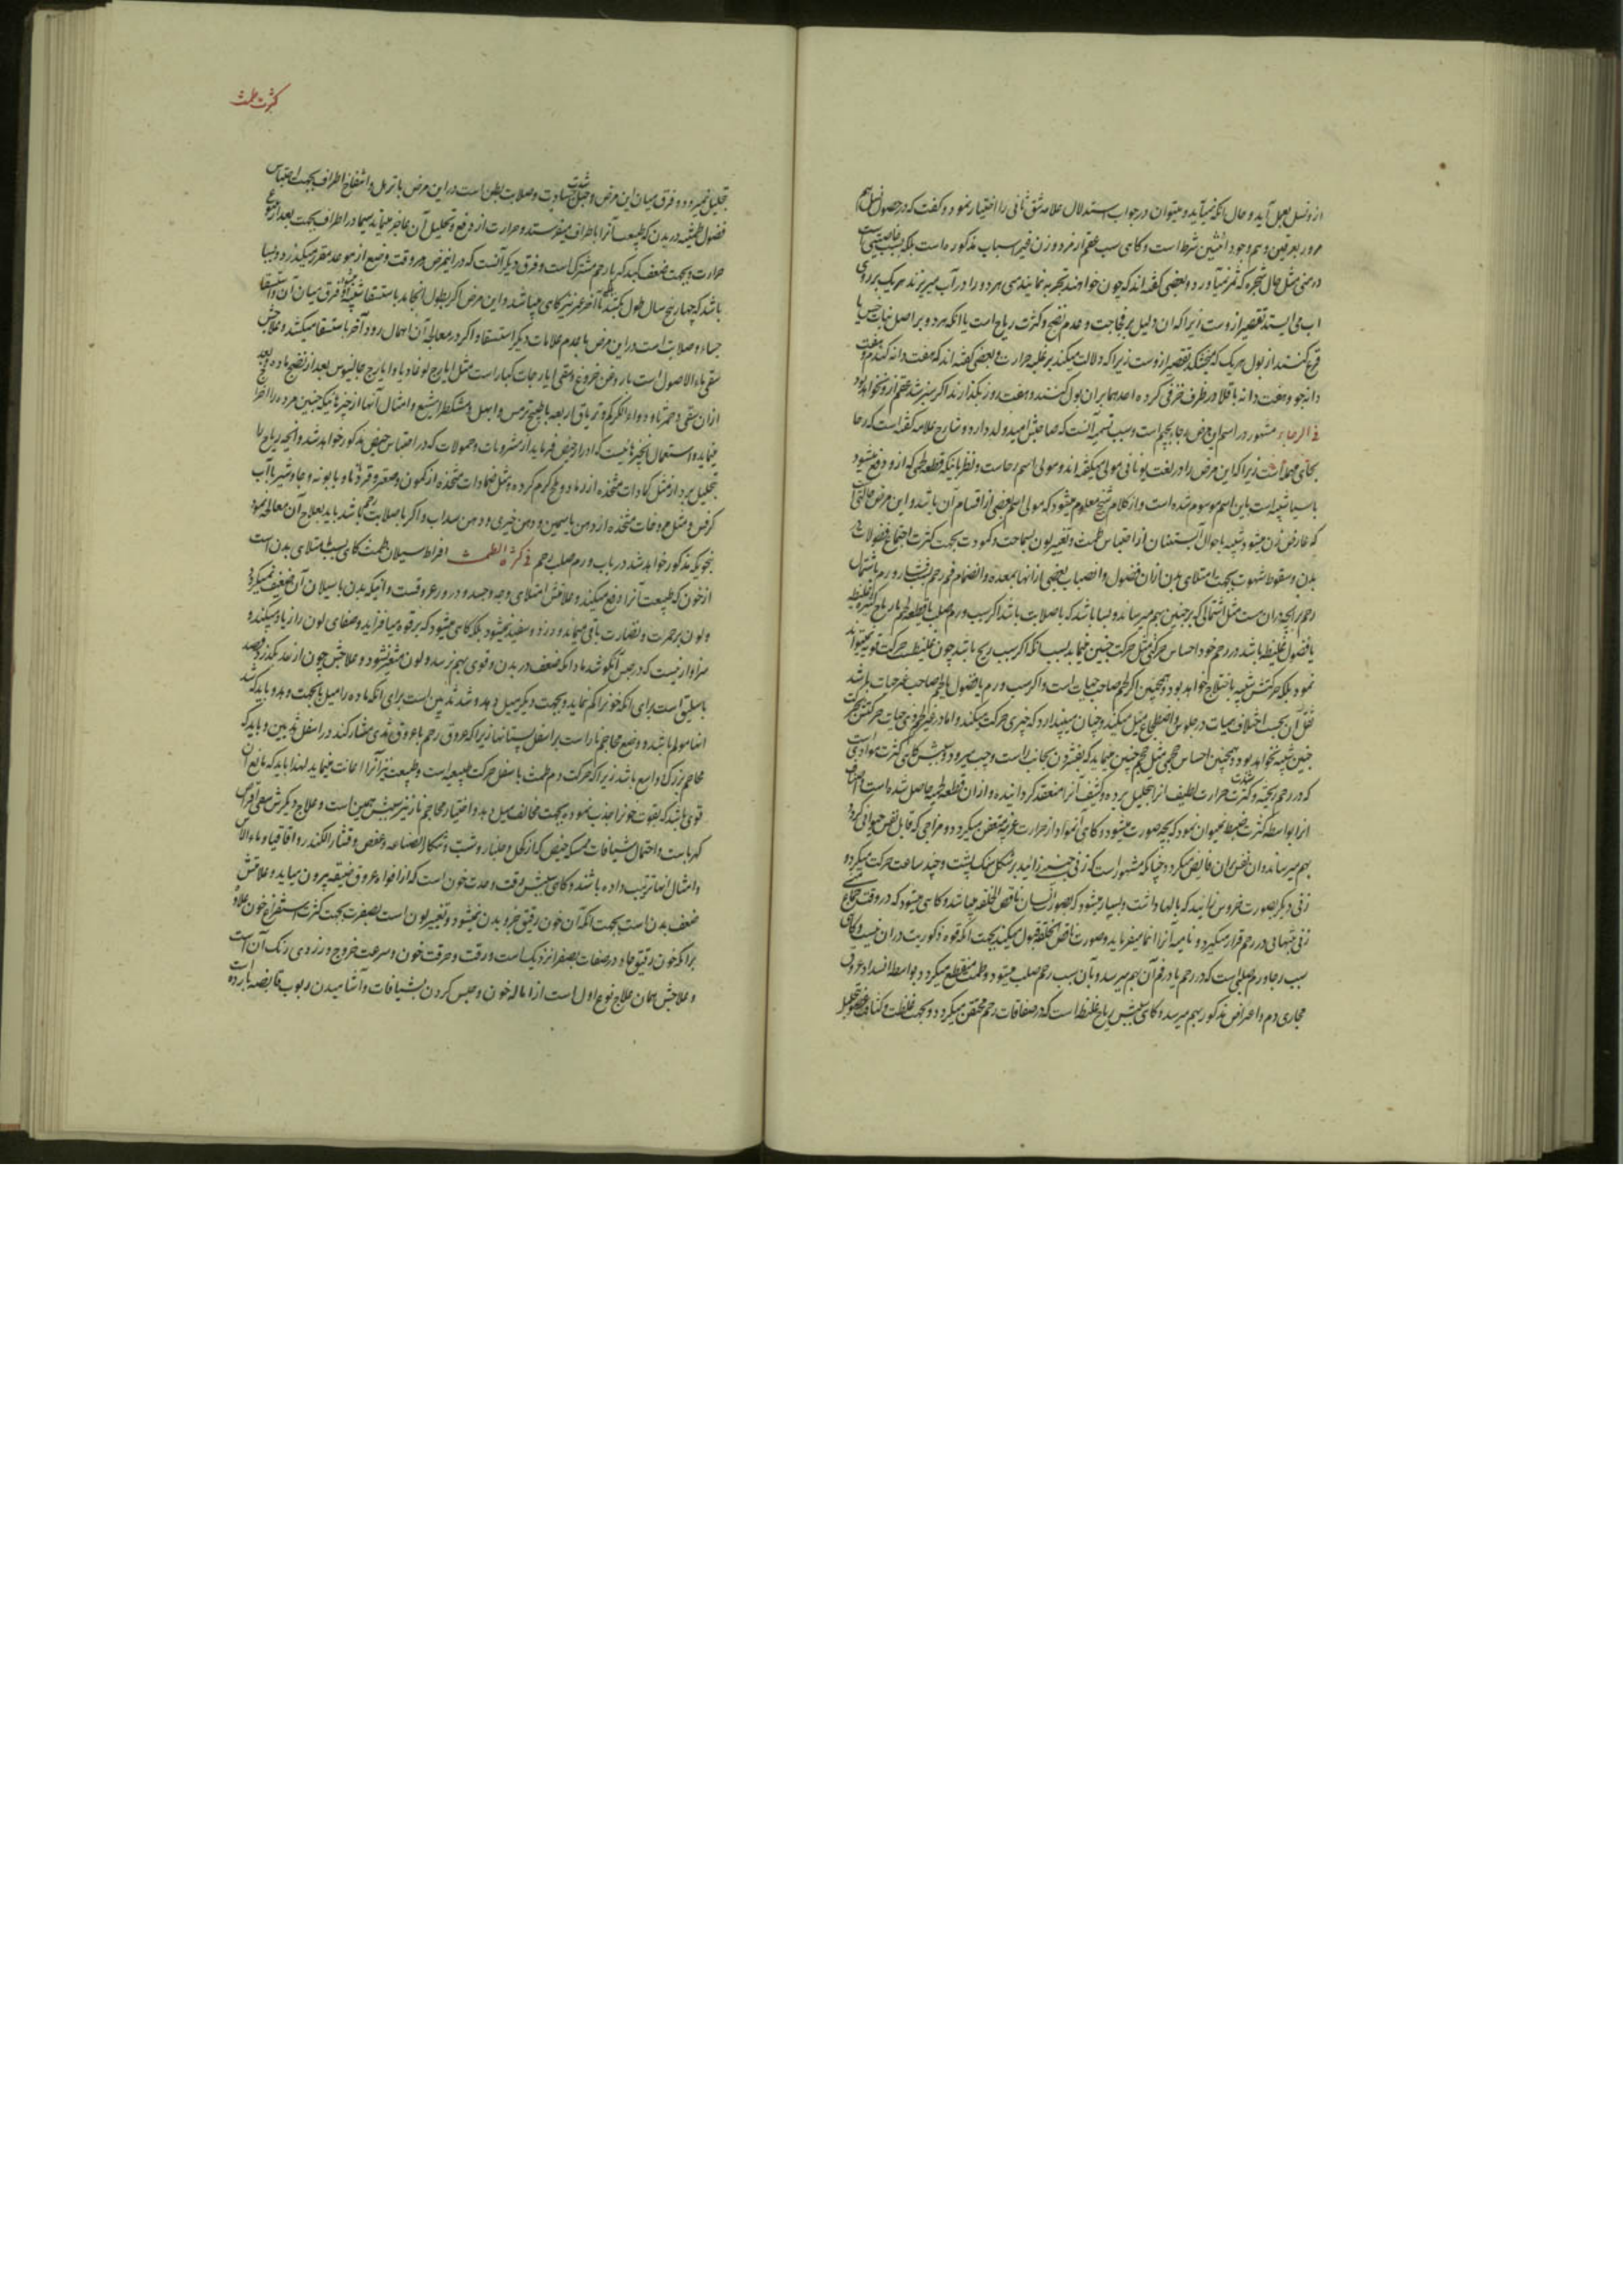 از و نسل بعمل آید و حال آنکه نمیآید و میتوان در جواب استدلال علامه شق ثانی را اختیار نمود و گفت که در حصول نسل هم
مرور بعرقین و هم وجود انثیین شرط است و کاهی سبب عقم از مرد و زن غیر اسباب مذکوره است بلکه بسبب خاصیتی است
در منی مثل حال شجره که ثمر نمیآورد و بعضی گفته‌اند که چون خواهند تجربه نمایند منی هر دو را در آب میریزند هر یک بر روی
آب می ایستد تقصیر از وست زیرا که آن دلیل بر فجاجت و عدم نضج و کثرت ریاح است یا آنکه هر دو بر اصل نبات خس یا
قرع کنند از بول هر یک که میخشکد تقصیر ازوست زیرا که دلالت میکند بر غلبه حرارت و بعضی گفته‌اند که هفت دانه کندم و هفت
دانه جو و هفت دانه باقلا در ظرف خزفی کرده احدهما بران بول کنند و هفت روز بگذارند اگر سبز شد عقم ازو نخواهد بود
فی الرجاء مشهور در اسم این مرض رجا بجیم است و سبب تسمیه آنست که صاحبش امید ولد دارد و شارح علامه گفته است که رحا
بحای مهمله است زیرا که این مرض را در لغت یونانی مولی میگفته‌اند و مولی اسم رحاست و نظر باینکه قطعه لحمی که ازو دفع میشود
بآسیا شبیه است باین اسم موسوم شده است و از کلام شیخ معلوم میشود که مولی اسم بعضی از اقسام آن باشد و این مرض حالتی است
که عارض زن میشود شبیه باحوال آبستنان از احتباس طمث و تغییر لون بسماجت و کمودت بجهت کثرت اجتماع فضولات در
بدن و سقوط شهوت بجهت امتلای بدن ازان فضول و انصباب بعضی ازانها بمعده و انضمام فم رحم بسبب ورم یا اشتمال
رحم بر آنچه دران هست مثل اشتمالی که بر جنین بهم میرساند و بسا باشد که با صلابت باشد اگر سبب ورم صلب یا قطعه لحم یا ریاح کثیره غلیظه
یا فضول غلیظه باشد در رحم خود احساس حرکتی مثل حرکت جنین نماید بسبب آنکه اگر سبب ریح باشد چون غلیظست حرکت قویه نمیتواند
نمود بلکه حرکتش شبیه باختلاج خواهد بود و همچنین اگر لحم صاحب حیات است و اگر سبب ورم یا فضول یا لحم صاحب غیر حیات باشد
ثقل آن بحسب اختلاف هیات در جلوس و اضطجاع میل میکند و چنان میپندارد که چیزی حرکت میکند و اما در غیر ذی حیات حرکتش بحرکت
جنین شبیه نخواهد بود و همچنین احساس حجمی مثل حجم جنین مینماید که بفشردن بجانب راست و چپ میرود و سببش کاهی کثرت موادی است
که در رحم ریخته و کثرت حرارت لطیف آنرا تحلیل برده و کثیف آنرا منعقد گردانیده و ازان قطعه لحمیه حاصل شده است
انرا بواسطه کثرت ضبط حیوان نبود که بچه صورت میشود و کاهی آنمواد از حرارت غریبه متعفن میکردد و مزاجی که قابل نفس حیوانی گردد
بهم میرساند و آن نفس بران فایض میگردد چنانکه مشهور است که زنی چیزی زائید بر شکل سنک پشت و چند ساعت حرکت میکرد و
زنی دیگر بصورت خروس زائید که بالها داشت و بسیار میشود که بصورت انسان ناقص الخلقه میباشد و کاهی میشود که در وقت جماع منی
زن بتنهایی در رحم قرار میگیرد و نامیه آنرا انما میفرماید و صورت ناقص الخلقه قبول میکند بجهت آنکه قوه ذکوریت دران نیست و کاهی
سبب رجا ورم صلبی است که در رحم یا در فم آن بهم میرسد و بآن سبب رحم صلب میشود و طمث منقطع میگردد بواسطه انسداد عروق
مجاری دم و اعراض مذکوره بهم میرسد و کاهی سببش ریاح غلیظ است که در صفاقات رحم محتقن میگردد و بجهت غلظت و کثافت عضو تحلیل
کثرت طمث
تحلیل نمیرود و فرق میان این مرض و حبل شدت جسادت و صلابت بطن است در این مرض با ترهل و انتفاخ اطراف بجهت احتباس
فضول طمثیه در بدن که طبیعت آنرا باطراف میفرستد و حرارت از دفع و تحلیل آن عاجز میماند سیما در اطراف بجهت بعد از منبع
حرارت و بجهت ضعف کبد که با رحم مشترک است و فرق دیگر آنست که در اینمرض وقت وضع از موعد مقرر میگذرد و بسا
باشد که چهار پنج سال طول بکشد بلکه تا آخر عمر نیز گاهی میباشد و این مرض اگر بطول انجامد باستسقا شبیه میشود و فرق میان آن و استسقا
جساء و صلابت است در این مرض با عدم علامات دیگر استسقا و اگر در معالجه آن اهمال رود آخر باستسقا میکشد و علاجش
سقی ماء الاصول است با روغن خروع و سقی ایارجات کبار است مثل ایارج لوغاذیا و ایارج جالینوس بعد از نضج ماده و بعد
ازان سقی دحمرثا و دواء الکرکم و تریاق اربعه با طبیخ ترمس و ابهل و مشکطرامشیع و امثال آنها از چیزهائیکه جنین مرده را اخراج
مینماید و استعمال آنچیزهائیست که ادرار حیض فرماید از مشروبات و حمولات که در احتباس حیض مذکور خواهد شد و آنچه ریاح را
بتحلیل برد از مثل کمادات متخذه از رماد و ملح گرم کرده و مثل ضمادات متخذه از کمون و صعتر و قردمانا و بابونه و جاوشیر با آب
کرفس و مثل مروخات متخذه از دهن یاسمین و دهن خیری و دهن سداب و اگر با صلابت رحم باشد باید بعلاج آن معالجه نمود
بنحویکه مذکور خواهد شد در باب ورم صلب رحم فی کثرة الطمث افراط سیلان طمث کاهی بسبب امتلای بدن است
از خون که طبیعت آنرا دفع میکند و علامتش امتلای وجه و جسد و درور عروقست و آنیکه بدن با سیلان آن ضعیف نمیگردد
و لون بر حمرت و نضارت باقی میماند و زرد و سفید نمیشود بلکه کاهی میشود که بر قوه میافزاید و صفای لون را زیاد میکند و
سزاوار نیست که در حبس آن کوشد مادامکه ضعف در بدن و قوی بهم نرسد و لون متغیر نشود و علاجش چون از حد بگذرد فصد
باسلیق است برای آنکه خون را کم نماید و بجهت دیگر میل دهد و شد ثدیین است برای آنکه ماده را میل بآنجهت دهد و باید که شد
انها مولم باشد و وضع محاجم نار است بر اسفل پستانها زیرا که عروق رحم با عروق ثدی مشارکند در اسفل ثدیین و باید که
محاجم بزرگ و اسع باشد زیرا که حرکت دم طمث باسفل حرکت طبیعه است و طبیعت نیز آنرا اعانت مینماید لهذا باید که مانع آن
قوی باشد که بقوت خون را جذب نموده بجهت مخالف میل دهد و اختیار محاجم نار نیز سببش همین است و علاج دیگرش سقی اقراص
کهرباست و احتمال شیافات ممسکه حیض که از کحل و جلنار و شب و سک الصناعه و عفص و قشار الکندر و اقاقیا و ماء الآس
و امثال انها ترتیب داده باشند و کاهی سببش رقت و حدت خون است که از افواه عروق ضیقه بیرون میآید و علامتش
ضعف بدن است بجهت آنکه آن خون رقیق جزو بدن نمیشود و تغییر لون است بصفرت بجهت کثرت استفراغ خون علاوه
برآنکه خون رقیق حاد در صفات بصفرا نزدیک است و رقت و حرقت خون و سرعت خروج و زردی رنک آن است
و علاجش همان علاج نوع اول است از اماله خون و حبس کردن بشیافات و آشامیدن ربوب قابضه بارده است